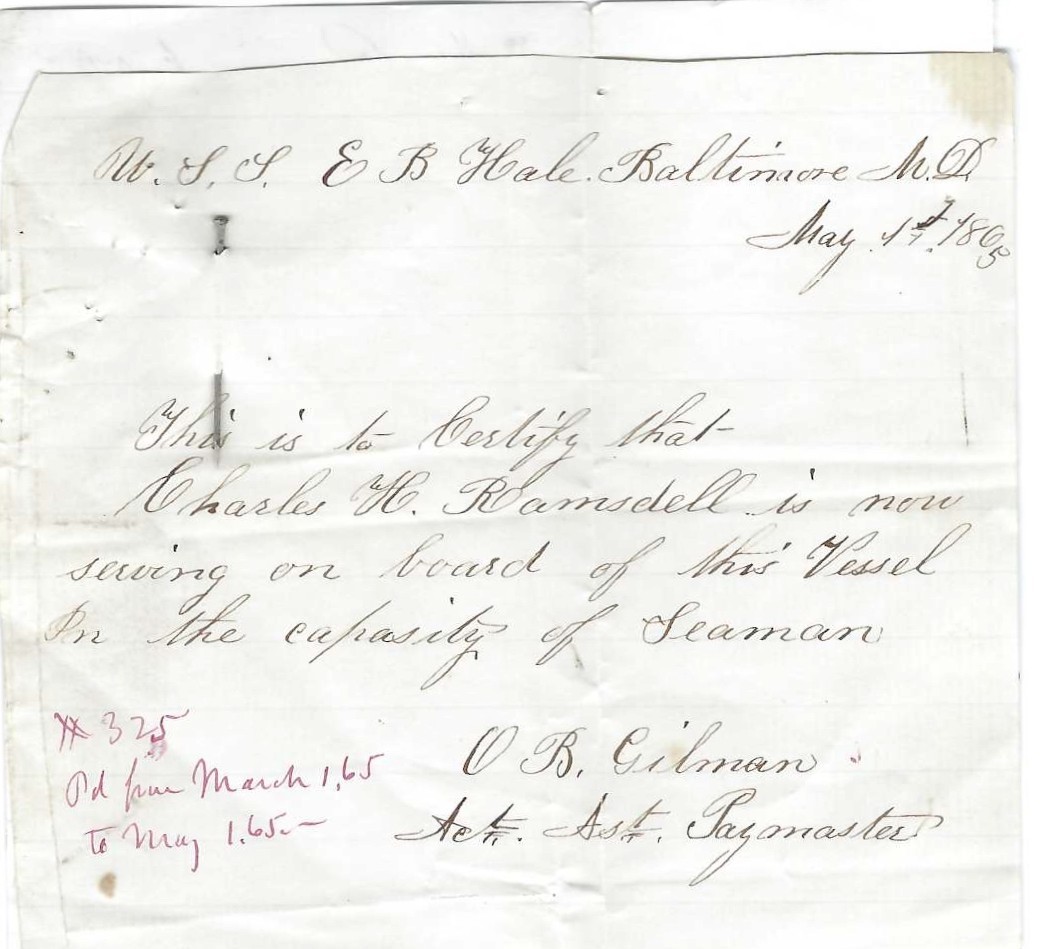 U. S. S. E B Hale. Baltimore M.D
May 1st, 1865
This is to Certify that
Charles H. Ramsdell is now
serving on board of this Vessel
In the capasity of Seaman
O B. Gilman
Act. Ast. Paymaster
# 325
Pd from March 1, 65
To May 1. 65. —